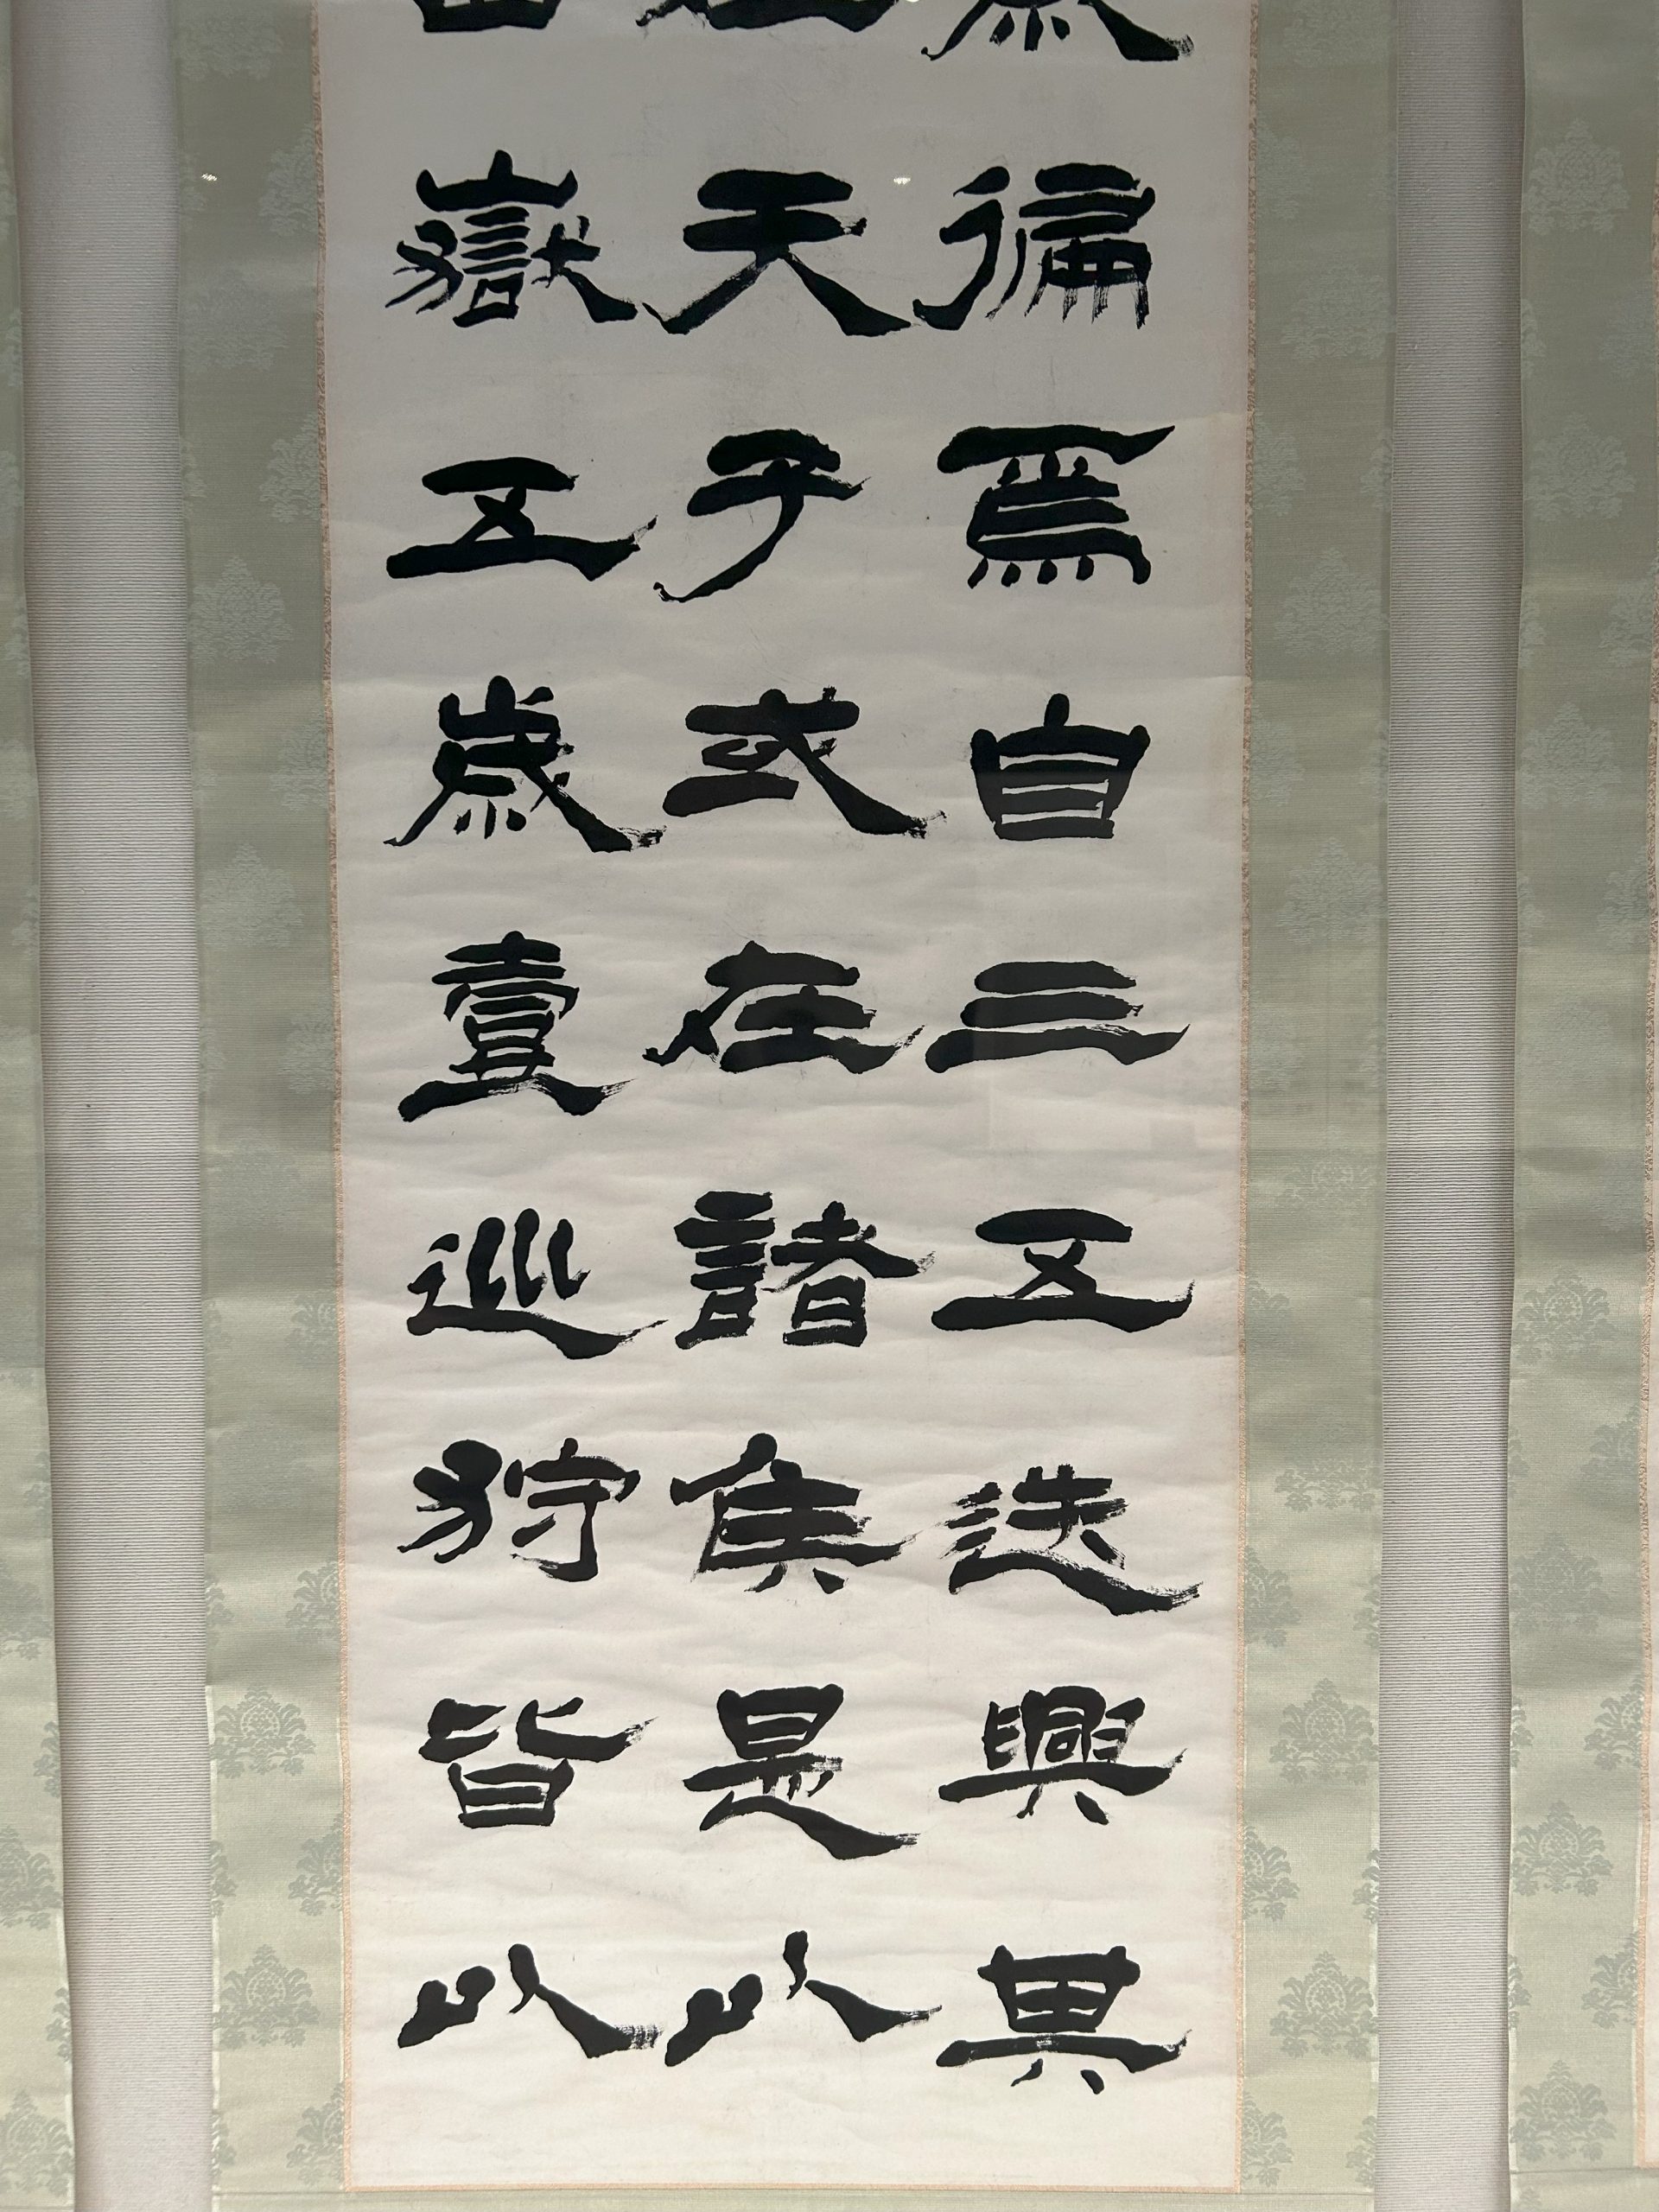 徧焉自三五迭興其
天子或在諸侯是以
嶽五歲壹巡狩皆以